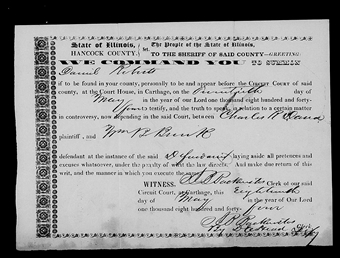 State of Illinois,
HANCOCK COUNTY,
The People of the State of Illinois,
sct. TO THE SHERIFF OF SAID COUNTY—GREETING:
WE COMMAND YOU TO SUMMON
Daniel Roberts
if to be found in your county, personally to be and appear before the CIRCUIT COURT of said
county, at the Court House, in Carthage, on the Twentieth day of
May in the year of our Lord one thousand eight hundred and forty-
four to testify, and the truth to speak, in relation to a certain matter
in controversy, now depending in the said Court, between Charles R Dana
plaintiff, and Wm B
defendant at the instance of the said Defendant laying aside all pretences and
excuses whatsoever, under the penalty of what the law directs. And make due return of this
writ, and the manner in which you execute the same.
WITNESS, Clerk of our said
Circuit Court, at Carthage, this Eighteenth
day of May in the year of Our Lord
one thousand eight hundred and forty- four
By